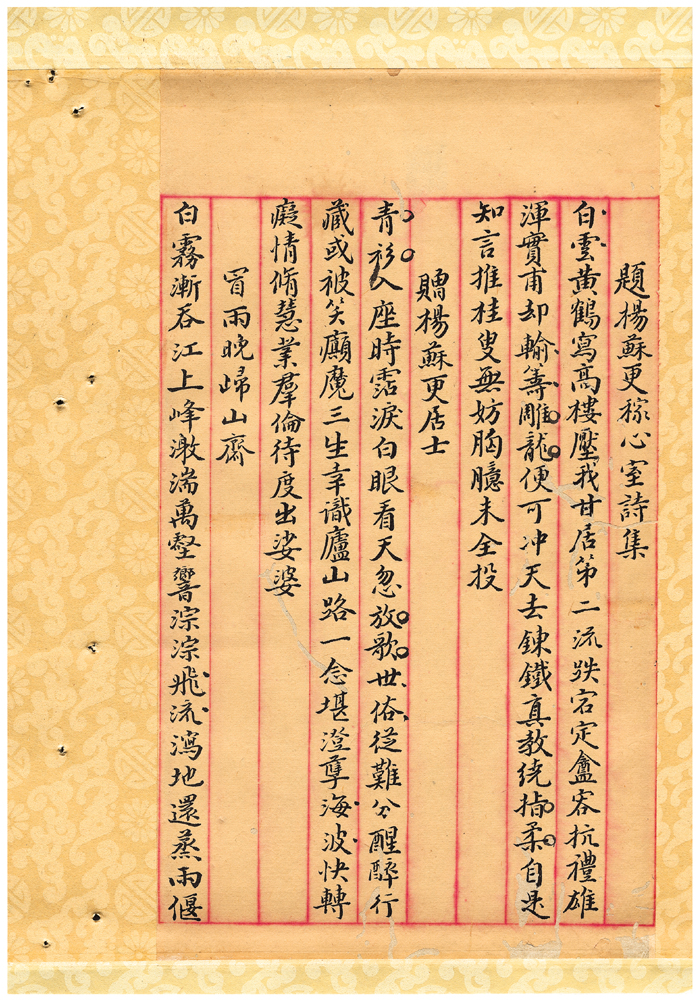 題楊蘇更稼心室詩集
白雲黃鶴寫高樓壓我甘居第二流跌宕定盦容抗禮雄
渾實甫却輸籌雕龍便可冲天去鍊鐵真教繞指柔自是
知言推桂叟無妨胸臆未全投
贈楊蘇更居士
青衫入座時霑淚白眼看天忽放歌世俗從難分醒醉行
藏或被笑癲魔三生幸識廬山路一念堪澄孽海波快轉
癡情脩慧業羣倫待度出娑婆
冒雨晚歸山齋
白霧漸吞江上峰激湍萬壑響淙淙飛流瀉地還蒸雨偃